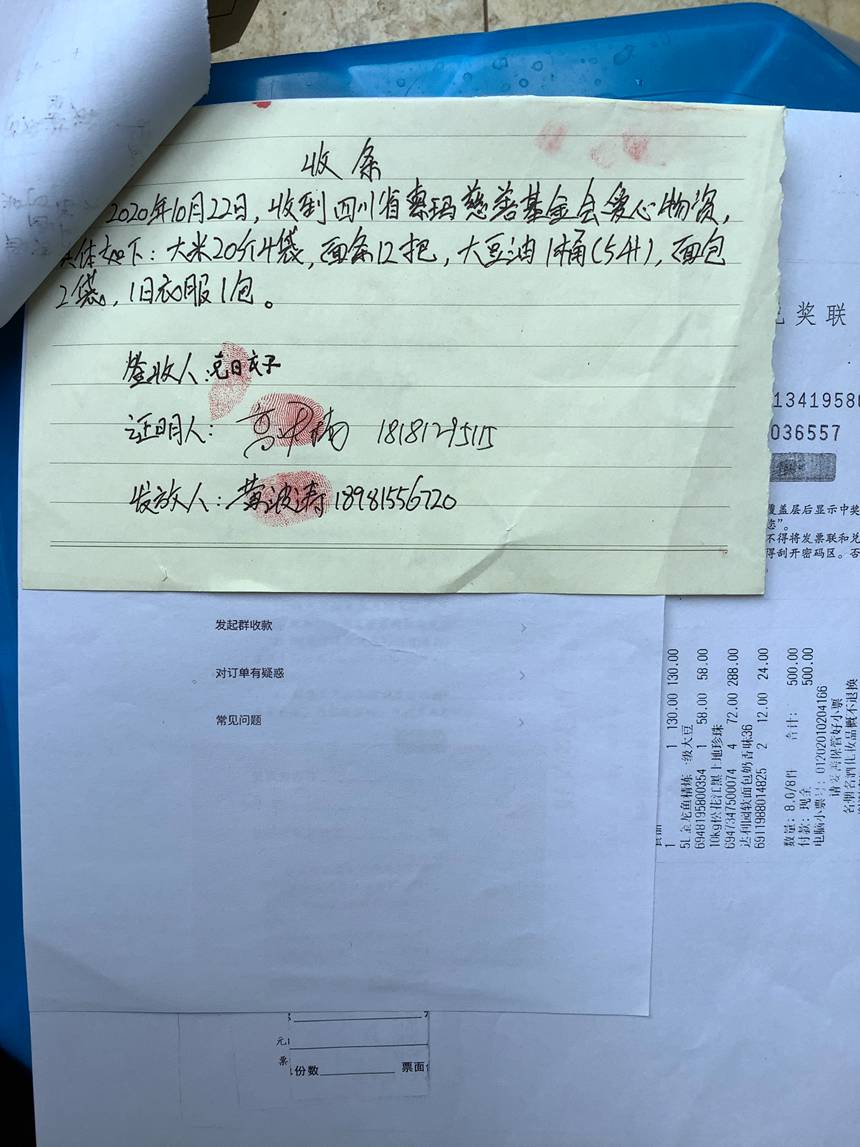 收条
2020年10月22日，收到四川省惠玛慈善基金会爱心物资，
体如下：大米20斤4袋，面条12把，大豆油1桶(5升)，面包
2袋，旧衣服1包。
签收人：克日衣子
证明人： 18181295115
发放人：黄波涛 18981556720
奖联
13419580
036557
覆盖层后显示中奖
不得将发票联和兑
得刮开密码区。否
发起群收款
对订单有疑惑
常见问题
1 130.00 130.00
5L金龙鱼精炼一级大豆
6948195800354 1 58.00 58.00
10kg松花江黑土地珍珠
6947347500074 4 72.00 288.00
达利园软面包奶香味36
6911988014825 2 12.00 24.00
数量: 8.0/8件 合计: 500.00
付款: 现金 500.00
电脑小票号: 01202010204166
请妥善保管好小票
名烟名酒化妆品概不退换
元
票
份数 票面